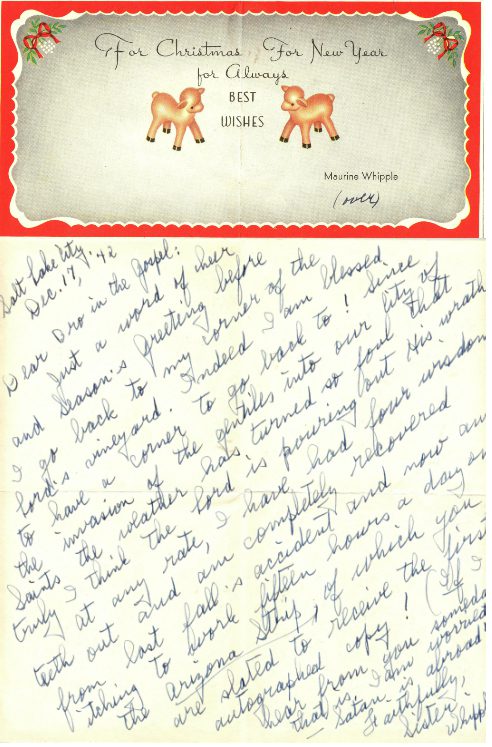 For Christmas For New Year
for Always
BEST
WISHES
Maurine Whipple
(over)
Salt Lake City,
Dec. 17, '42
Dear Bro in the Gospel:
Just a word of cheer
and Season's Greeting before
I go back to my corner of the
Lord's vineyard. Indeed I am blessed
to have a corner to go back to! Since
the invasion of the gentiles into our City of
Saints the weather has turned so foul that
truly I think the Lord is pouring out His wrath.
At any rate, I have had four wisdom
teeth out and am completely recovered
from last fall's accident and now am
itching to work fifteen hours a day on
the Arizona Strip, of which you
are slated to receive the first
autographed copy! (If I
hear from you someday
that is, I am worried
— Satan is abroad!
Faithfully,
Sister
Whipple